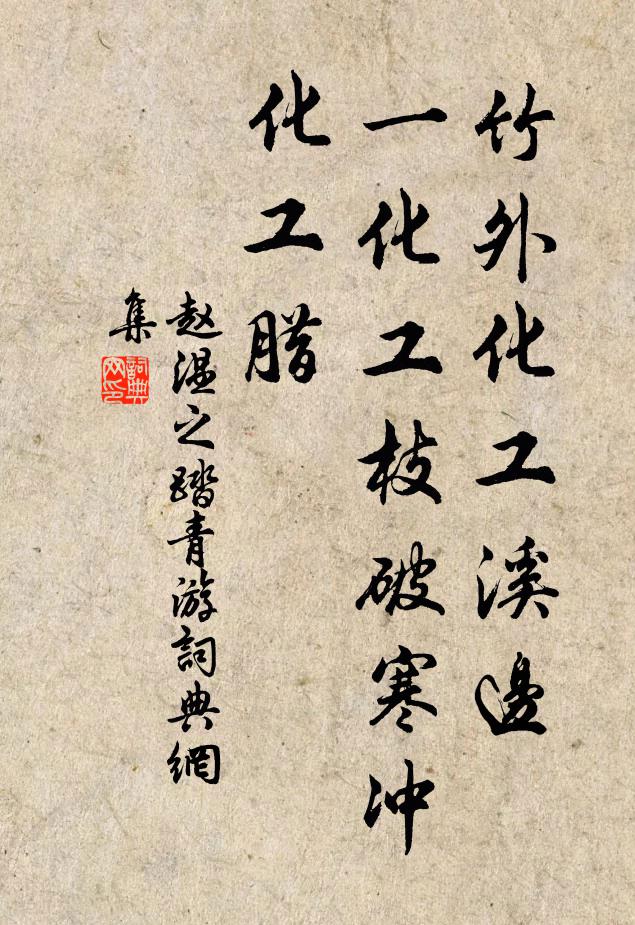 竹外化工溪邊
一化工枝破寒冲
化工腊
赵温之踏青游詞典網
集
詞典
网印